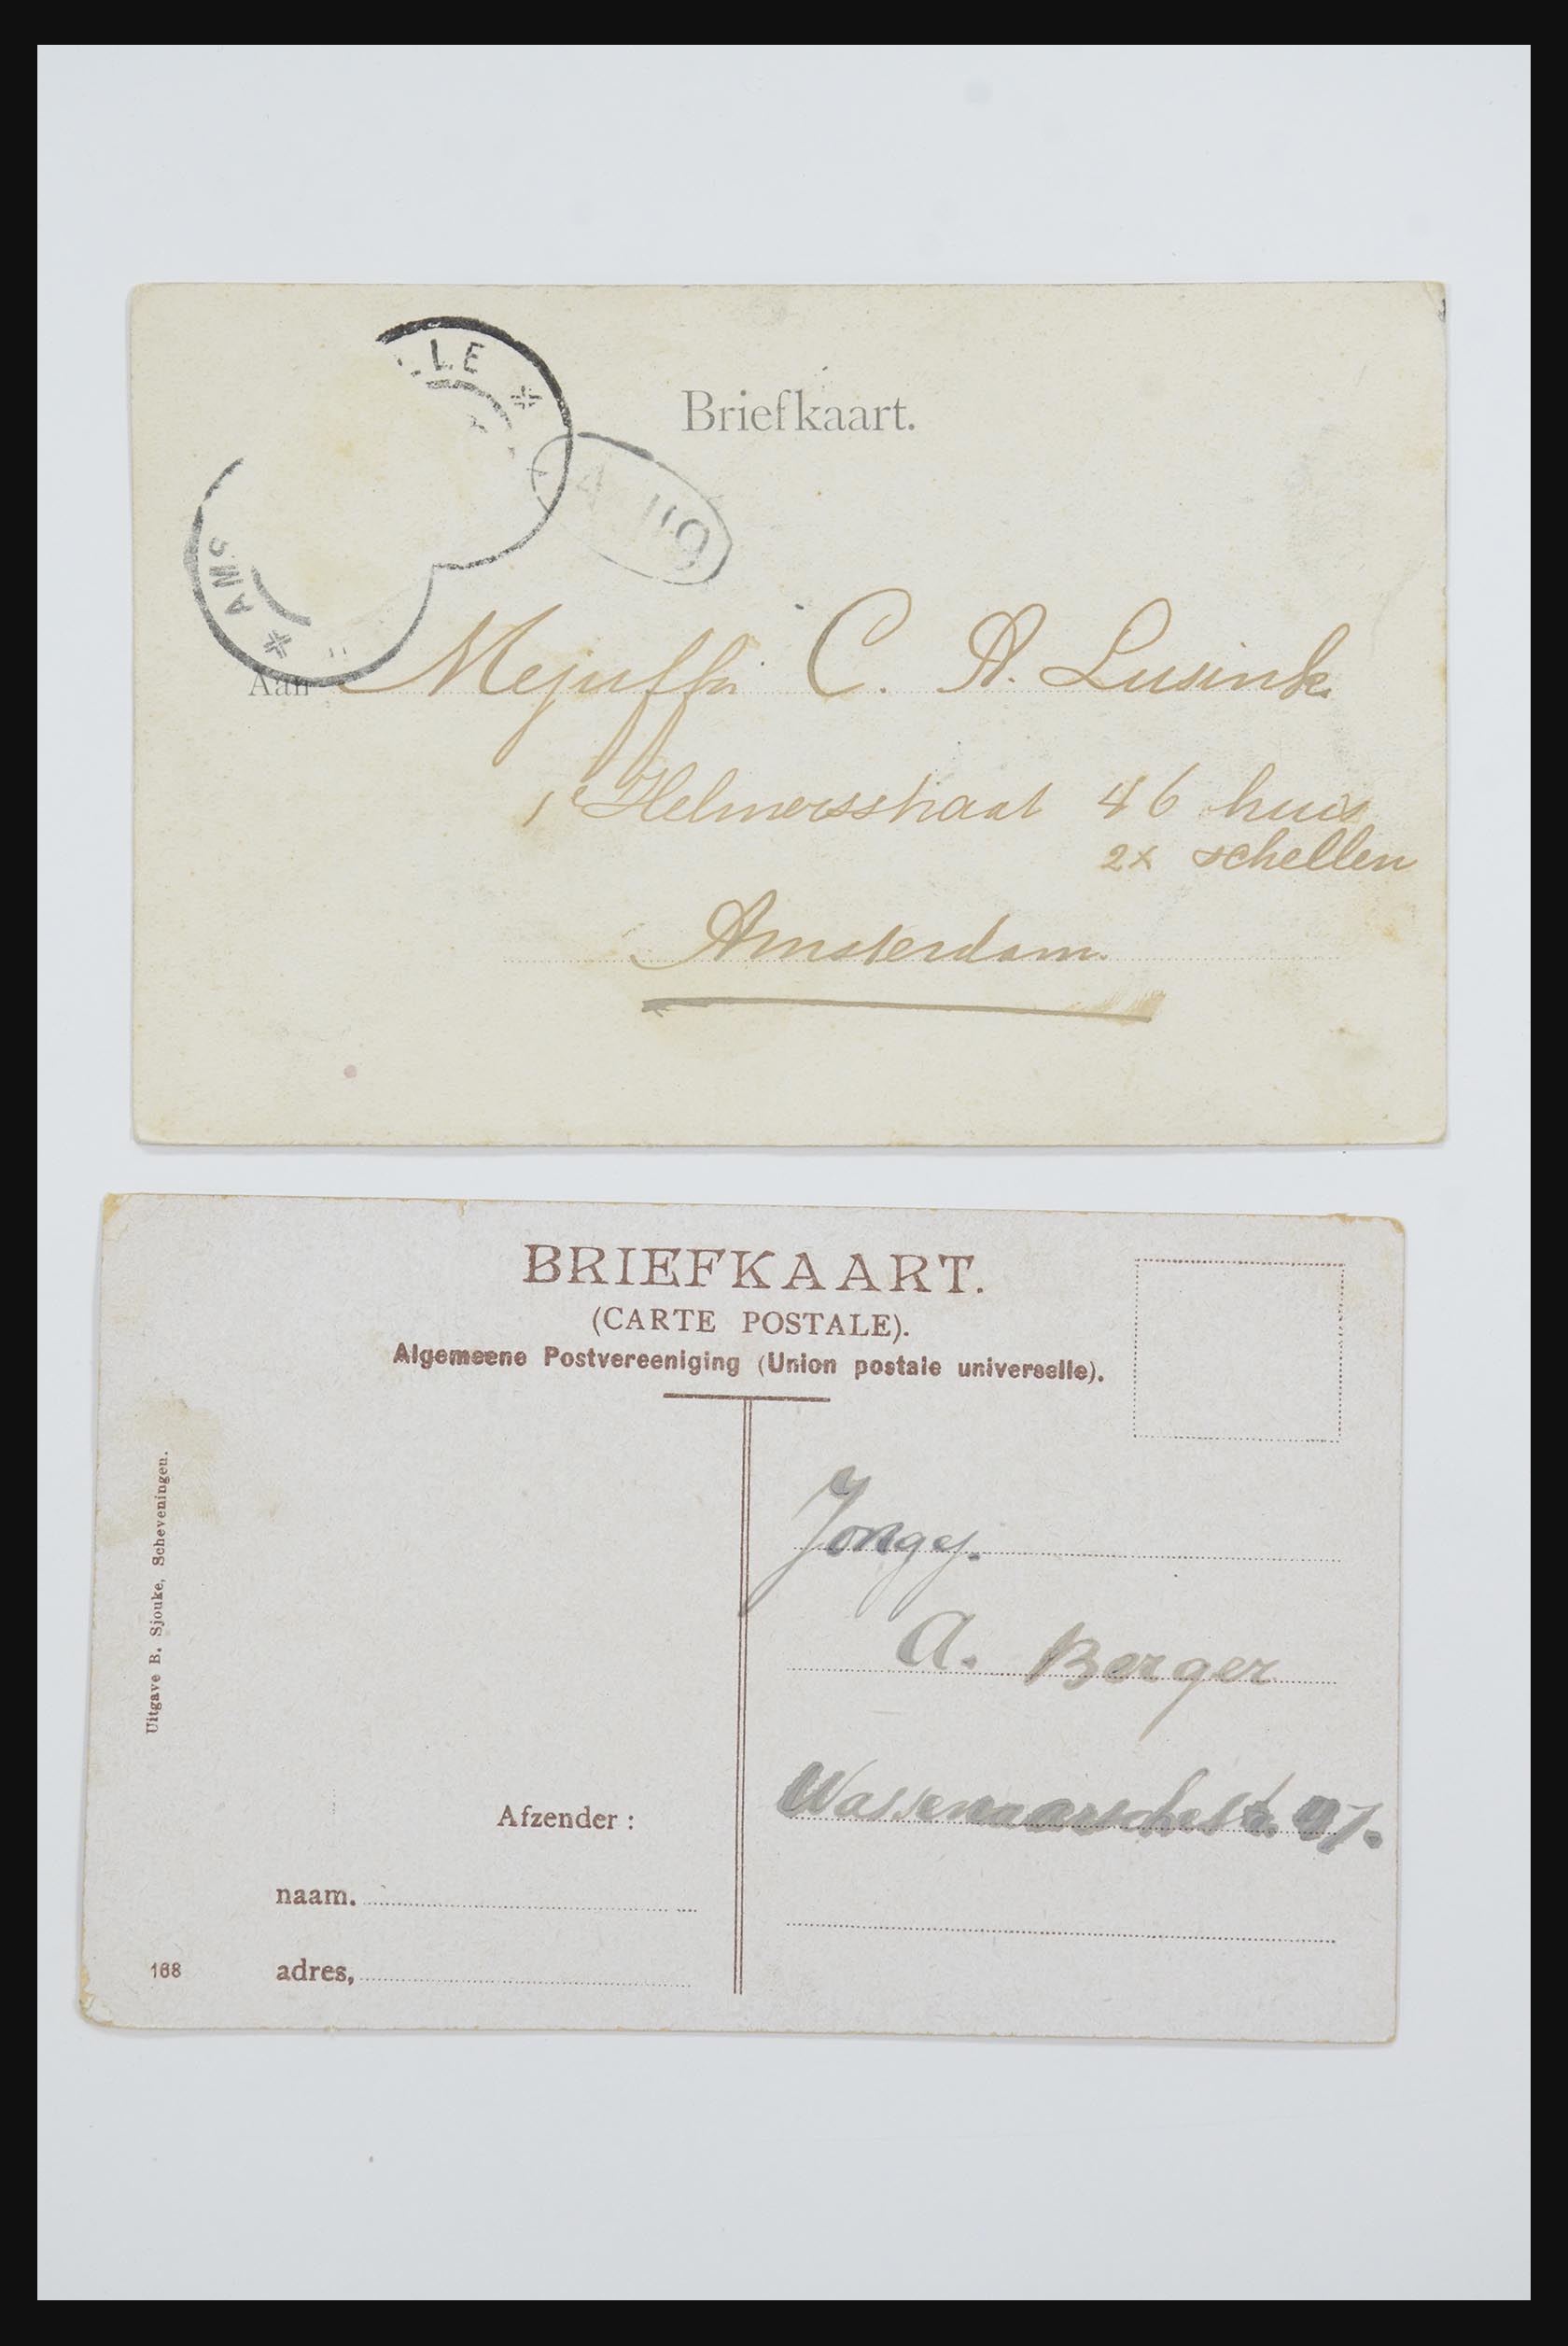 LLE
AMS
Briefkaart.
Aan Mejuffr. C. A. Lusink.
1e Helmersstraat 46 huis
2x schellen
Amsterdam.
BRIEFKAART.
(CARTE POSTALE).
Algemeene Postvereeniging (Union postale universelle).
Uitgave B. Sjouke, Scheveningen.
Jongej.
A. Berger
Afzender :
naam.
168
adres,